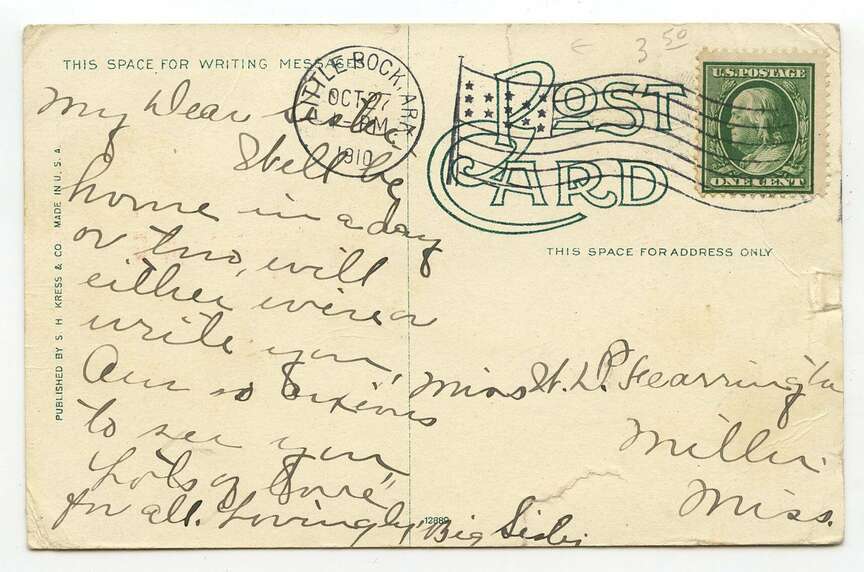 THIS SPACE FOR WRITING MESSAGES
LITTLE ROCK, ARK.
OCT 27
PM
1910
POST CARD
U.S. POSTAGE
ONE CENT
3 50
THIS SPACE FOR ADDRESS ONLY
PUBLISHED BY S. H. KRESS & CO. MADE IN U. S. A.
My Dear Sister
Shall be
home in a day
or two, will
either wire or
write you,
Am so anxious
to see you
Lots of love
for all. Lovingly, Big Sister
12889
Miss W. L. P. Fearrington
Miller
Miss.